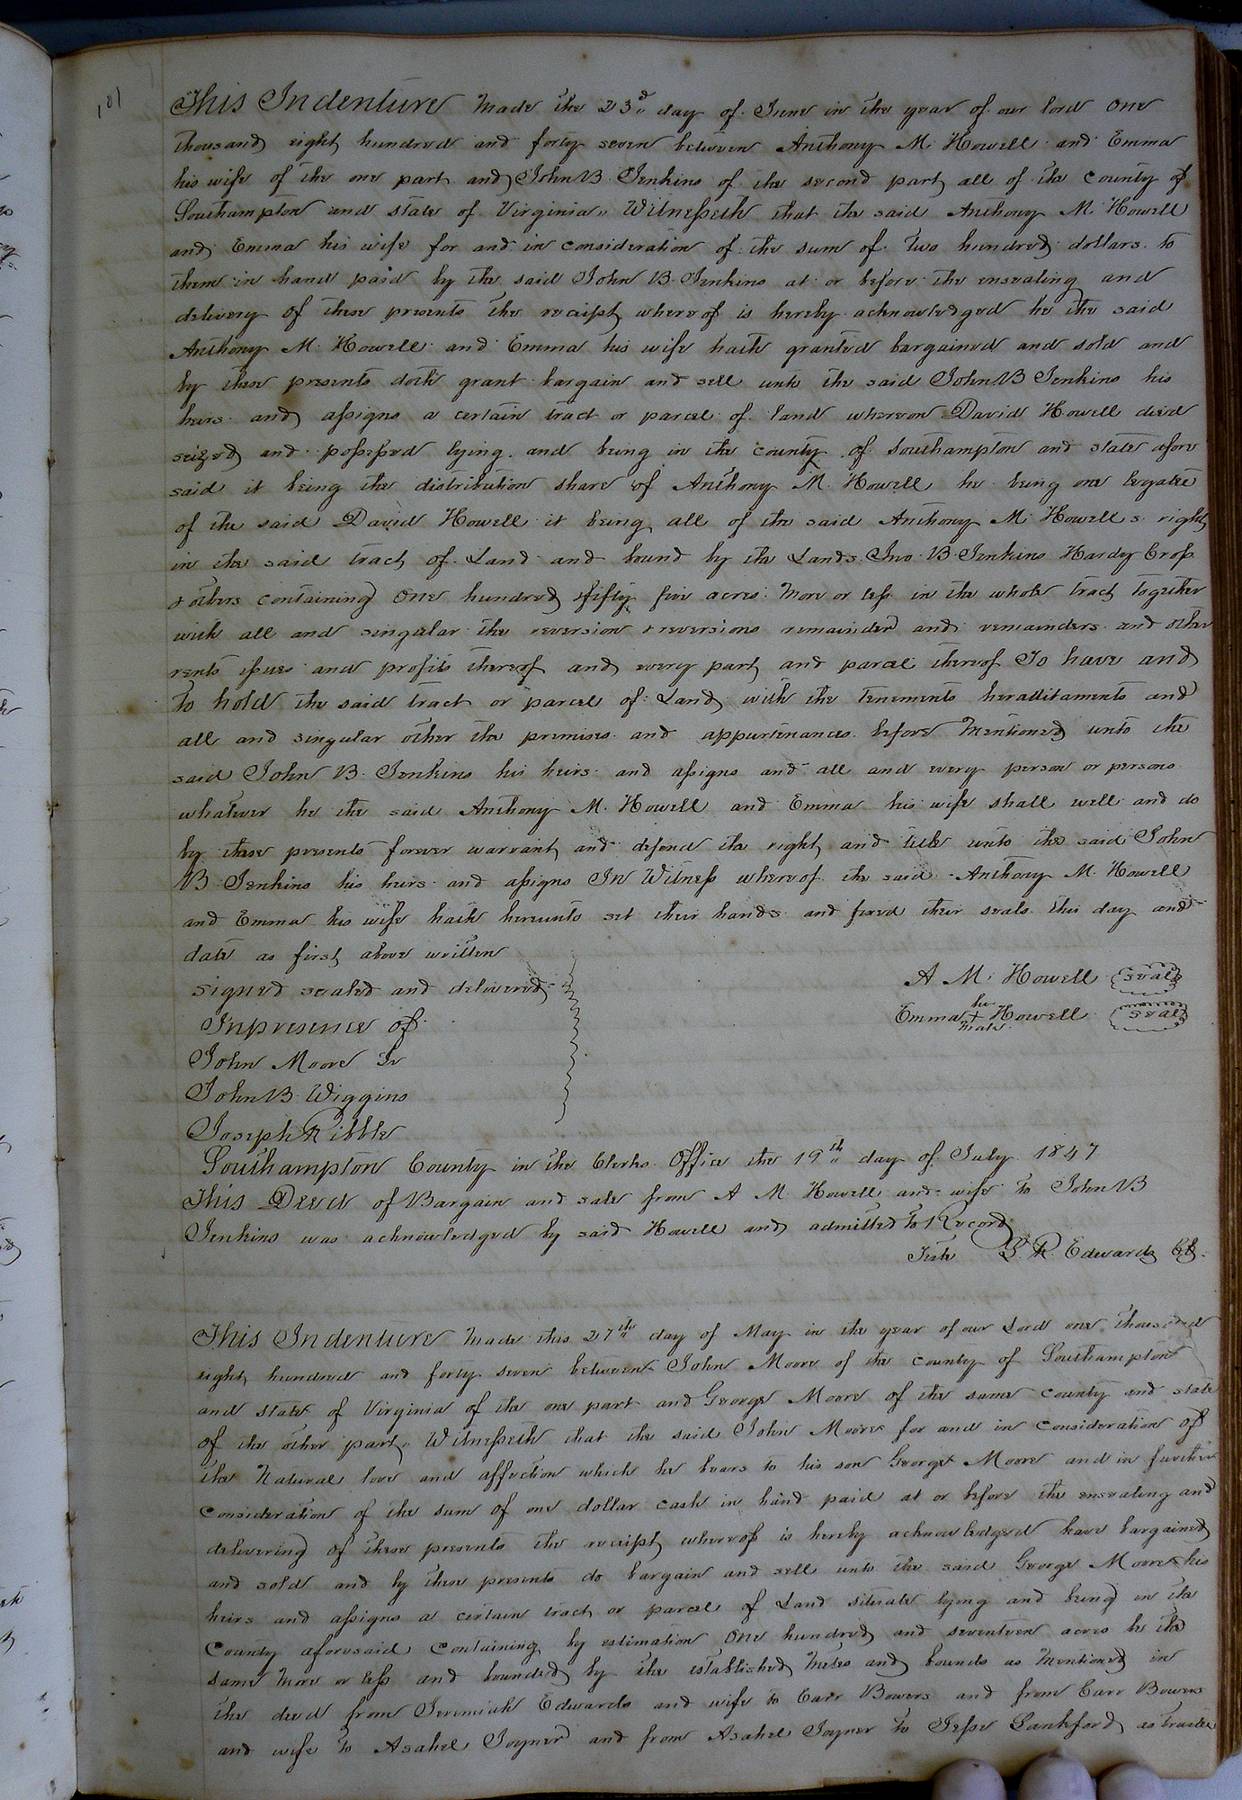 101
This Indenture Made the 23d day of June in the year of our lord One
thousand eight hundred and forty seven between Anthony M Howell and Emma
his wife of the one part and John B Jenkins of the second part all of the County of
Southampton and state of Virginia Witnesseth that the said Anthony M Howell
and Emma his wife for and in consideration of the sum of two hundred dollars to
them in hand paid by the said John B Jenkins at or before the ensealing and
delivery of these presents the receipt whereof is hereby acknowledged he the said
Anthony M Howell and Emma his wife hath granted bargained and sold and
by these presents doth grant bargain and sell unto the said John B Jenkins his
heirs and assigns a certain tract or parcel of land whereon David Howell died
seized and possessed lying and being in the county of Southampton and state afore
said it being the distribution share of Anthony M Howell he being one legatee
of the said David Howell it being all of the said Anthony M Howells right
in the said tract of Land and bound by the Lands Jno B Jenkins Hardy Cross
& others containing One hundred & fifty five acres More or less in the whole tract together
with all and singular the reversion & reversions remainder and remainders and other
rents issues and profits thereof and every part and parcel thereof To have and
To hold the said tract or parcel of Land with the Tenements heraditaments and
all and singular other the premises and appurtenances before Mentioned unto the
said John B Jenkins his heirs and assigns and all and every person or persons
whatever he the said Anthony M. Howell and Emma his wife shall well and do
by these presents forever warrant and defend the right and title unto the said John
B Jenkins his heirs and assigns In Witness whereof the said Anthony M Howell
and Emma his wife hath hereunto set their hands and fixed their seals this day and
date as first above written
signed sealed and delivered A M Howell (seal)
Inpresence of Emma her + mark Howell (seal)
John Moore Jr
John B Wiggins
Joseph Kittle
Southampton County in the Clerks Office the 19th day of July 1847
This Deed of Bargain and sale from A M Howell and wife to John B
Jenkins was acknowledged by said Howell and admitted to Record
Teste L R Edwards Clk
This Indenture Made this 27th day of May in the year of our Lord one thousand
eight hundred and forty seven between John Moore of the county of Southampton
and state of Virginia of the one part and George Moore of the same county and state
of the other part Witnesseth that the said John Moore for and in Consideration of
the Natural love and affection which he bears to his son George Moore and in further
Consideration of the sum of one dollar cash in hand paid at or before the ensealing and
delivering of these presents the receipt whereof is hereby acknowledged have bargained
and sold and by these presents do bargain and sell unto the said George Moore his
heirs and assigns a certain tract or parcel of Land situate lying and being in the
County aforesaid Containing by estimation One hundred and seventeen acres be the
same More or less and bounded by the established Metes and bounds as Mentioned in
the deed from Jeremiah Edwards and wife to Carr Bowers and from Carr Bowers
and wife to Asahel Joyner and from Asahel Joyner to Jesse Lankford as trustee